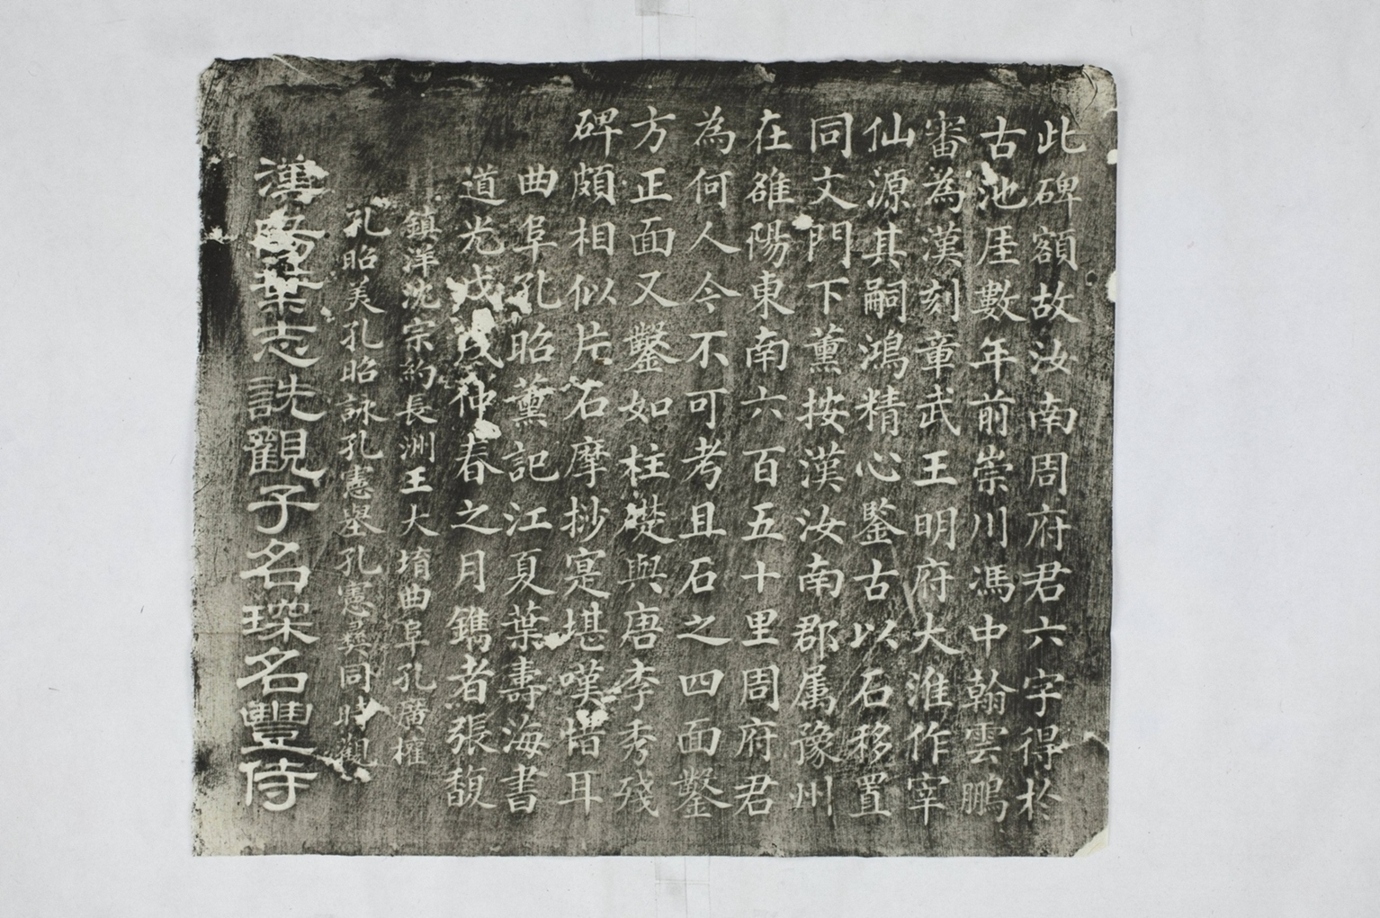 此碑額故汝南周府君六字得於
古池厓數年前崇川馮中翰雲鵬
審為漢刻章武王明府大淮作宰
仙源其嗣鴻精心鑒古以石移置
同文門下薰按漢汝南郡属豫州
在雒陽東南六百五十里周府君
為何人今不可考且石之四面鑿
方正面又鑿如柱礎與唐李秀殘
碑頗相似片石摩挱寔堪嘆惜耳
曲阜孔昭薰記江夏葉壽海書
道光戊戌仲春之月鐫者張馥
鎮洋沈宗約長洲王大堉曲阜孔廣權
孔昭美孔昭詠孔憲壆孔憲彝同時觀
漢陽葉志詵觀子名琛名豐侍